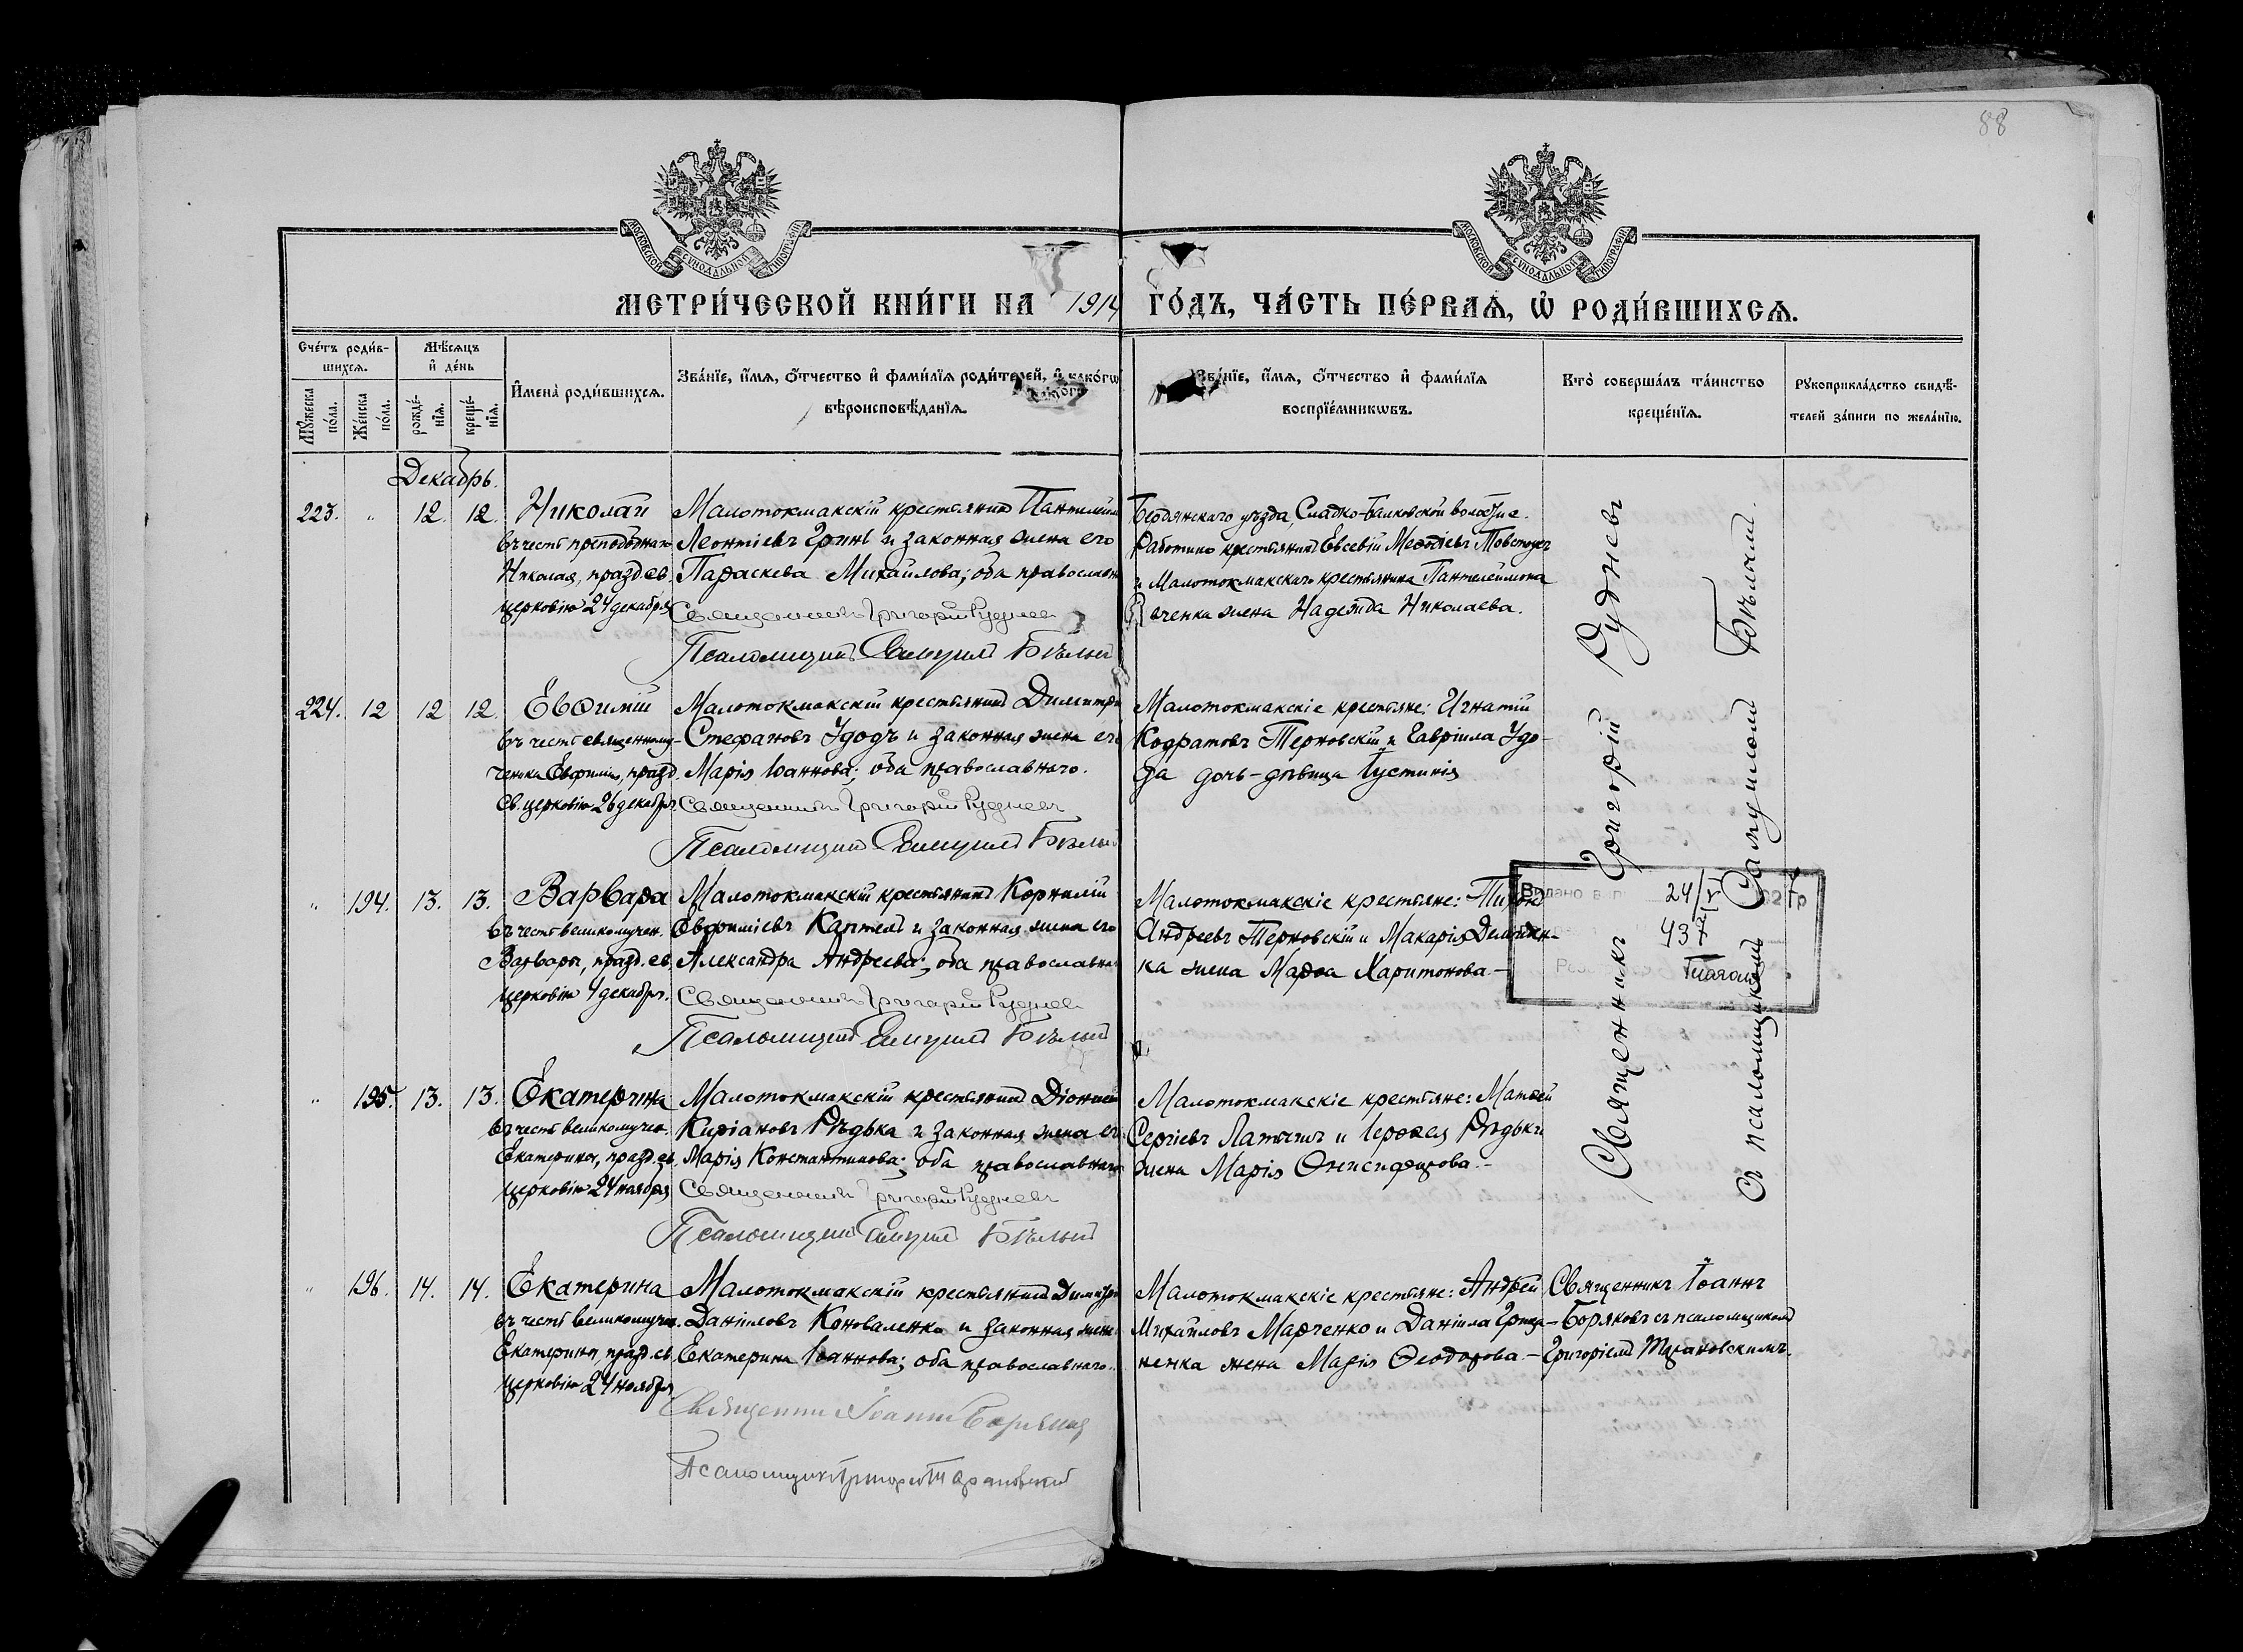 88
МОСКОВСКОЙ СУНОДАЛЬНОЙ ТИПОГРАФІИ
МОСКОВСКОЙ СУНОДАЛЬНОЙ ТИПОГРАФІИ
МЕТРИ́ЧЕСКОЙ КНИ́ГИ НА 1914 ГО́ДЪ, ЧА́СТЬ ПЕ́РВАѦ, Ѡ҆ РОДИ́ВШИХСѦ.
Сче́тъ роди́в-
шихсѧ.
Мѣ́сѧцъ
и҆ де́нь
Мꙋ́жеска по́ла.
Же́нска по́ла.
рожде́-нїѧ.
креще́-нїѧ.
И҆мена̀ роди́вшихсѧ.
Зва́нїе, и҆́мѧ, ѻ҆́тчество и҆ фами́лїѧ роди́телей, и҆ како́гѡ
вѣроисповѣ́данїѧ.
Зва́нїе, и҆́мѧ, ѻ҆́тчество и҆ фами́лїѧ
воспрїе́мникѡвъ.
Кто̀ соверша́лъ та́инство
креще́нїѧ.
Рꙋкоприкла́дство свидѣ́-
телей за́писи по жела́нїю.
Декабрь.
223. " 12. 12. Николай
въ честь преподобнаго
Николая, празд. св.
церковію 24 декабря
Малотокмакскій крестьянинъ Пантелеим
Леонтіевъ Гринь и законная жена его
Параскева Михайлова; оба православн
Священникъ Григорій Рудневъ
Псаломщикъ Самуилъ Бѣлый
Бердянскаго уѣзда, Сладко-Балковской волости с.
Работино крестьянинъ Евсевій Меѳодіевъ Товстоусъ
и Малотокмакскаго крестьянина Пантелеимона
вченка жена Надежда Николаева.
224. 12 12 12. Евѳимій
въ честь священному-
ченика Евфимія, празд.
св. церковію 26 декабря
Малотокмакскій крестьянинъ Димитрі
Стефановъ Удодъ и законная жена его
Марія Іоаннова; оба православнаго.
Священникъ Григорій Рудневъ
Псаломщикъ Самуилъ Бѣлый
Малотокмакскіе крестьяне: Игнатій
Кодратовъ Терновскій и Гавріила Удо-
да дочь-дѣвица Іустинія
" 194. 13. 13. Варвара
въ честь великомучен.
Варвары, празд. св.
церковію 4 декабря.
Малотокмакскій крестьянинъ Корнилій
Евфиміевъ Каптелъ и законная жена его
Александра Андреева; оба православна
Священникъ Григорій Рудневъ
Псаломщикъ Самуилъ Бѣлый
Малотокмакскіе крестьяне: Тихонъ
Андреевъ Терновскій и Макарія
ка жена Марѳа Харитонова.-
24/V
437
" 195. 13. 13. Екатерина
въ честь великомучен.
Екатерины, празд. св.
церковію 24 ноября
Малотокмакскій крестьянинъ Діонисій
Киріановъ Рѣдька и законная жена его
Марія Константинова; оба православнаго
Священникъ Григорій Рудневъ
Псаломщикъ Самуилъ Бѣлый
Малотокмакскіе крестьяне: Матѳей
Сергіевъ Латышъ и Іероѳея Рѣдьки
жена Марія Онисифорова.-
Священникъ Григорій Рудневъ
съ псаломщикомъ Самуиломъ Бѣлымъ.
" 196. 14. 14. Екатерина
въ честь великомучен.
Екатерины, празд. св.
церковію 24 ноября
Малотокмакскій крестьянинъ Димитрі
Даниловъ Коноваленко и законная жена
Екатерина Іоаннова; оба православнаго.
Священникъ Іоаннъ Боряковъ
Псаломщикъ Григорій Тарановскій
Малотокмакскіе крестьяне: Андрей
Михайловъ Марченко и Даніила Грица-
ненка жена Марія Ѳеодорова.-
Священникъ Іоаннъ
Боряковъ съ псаломщикомъ
Григоріемъ Тарановскимъ.